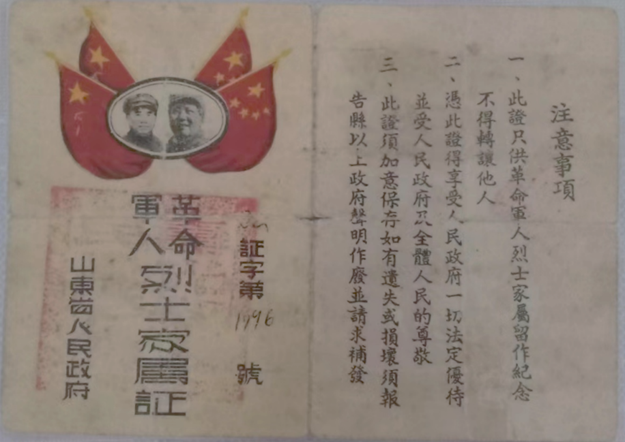 注意事項
一、此證只洪革命軍人烈士家屬留作紀念
不得轉讓他人
二、憑此證得享受人民政府一切法定優待
並受人民政府及全體人民的尊敬
三、此證須加意保存如有遺失或損壞須報
告縣以上政府聲明作廢並請求補發
証字第1996號
革命
軍人烈士家屬証
山東省人民政府